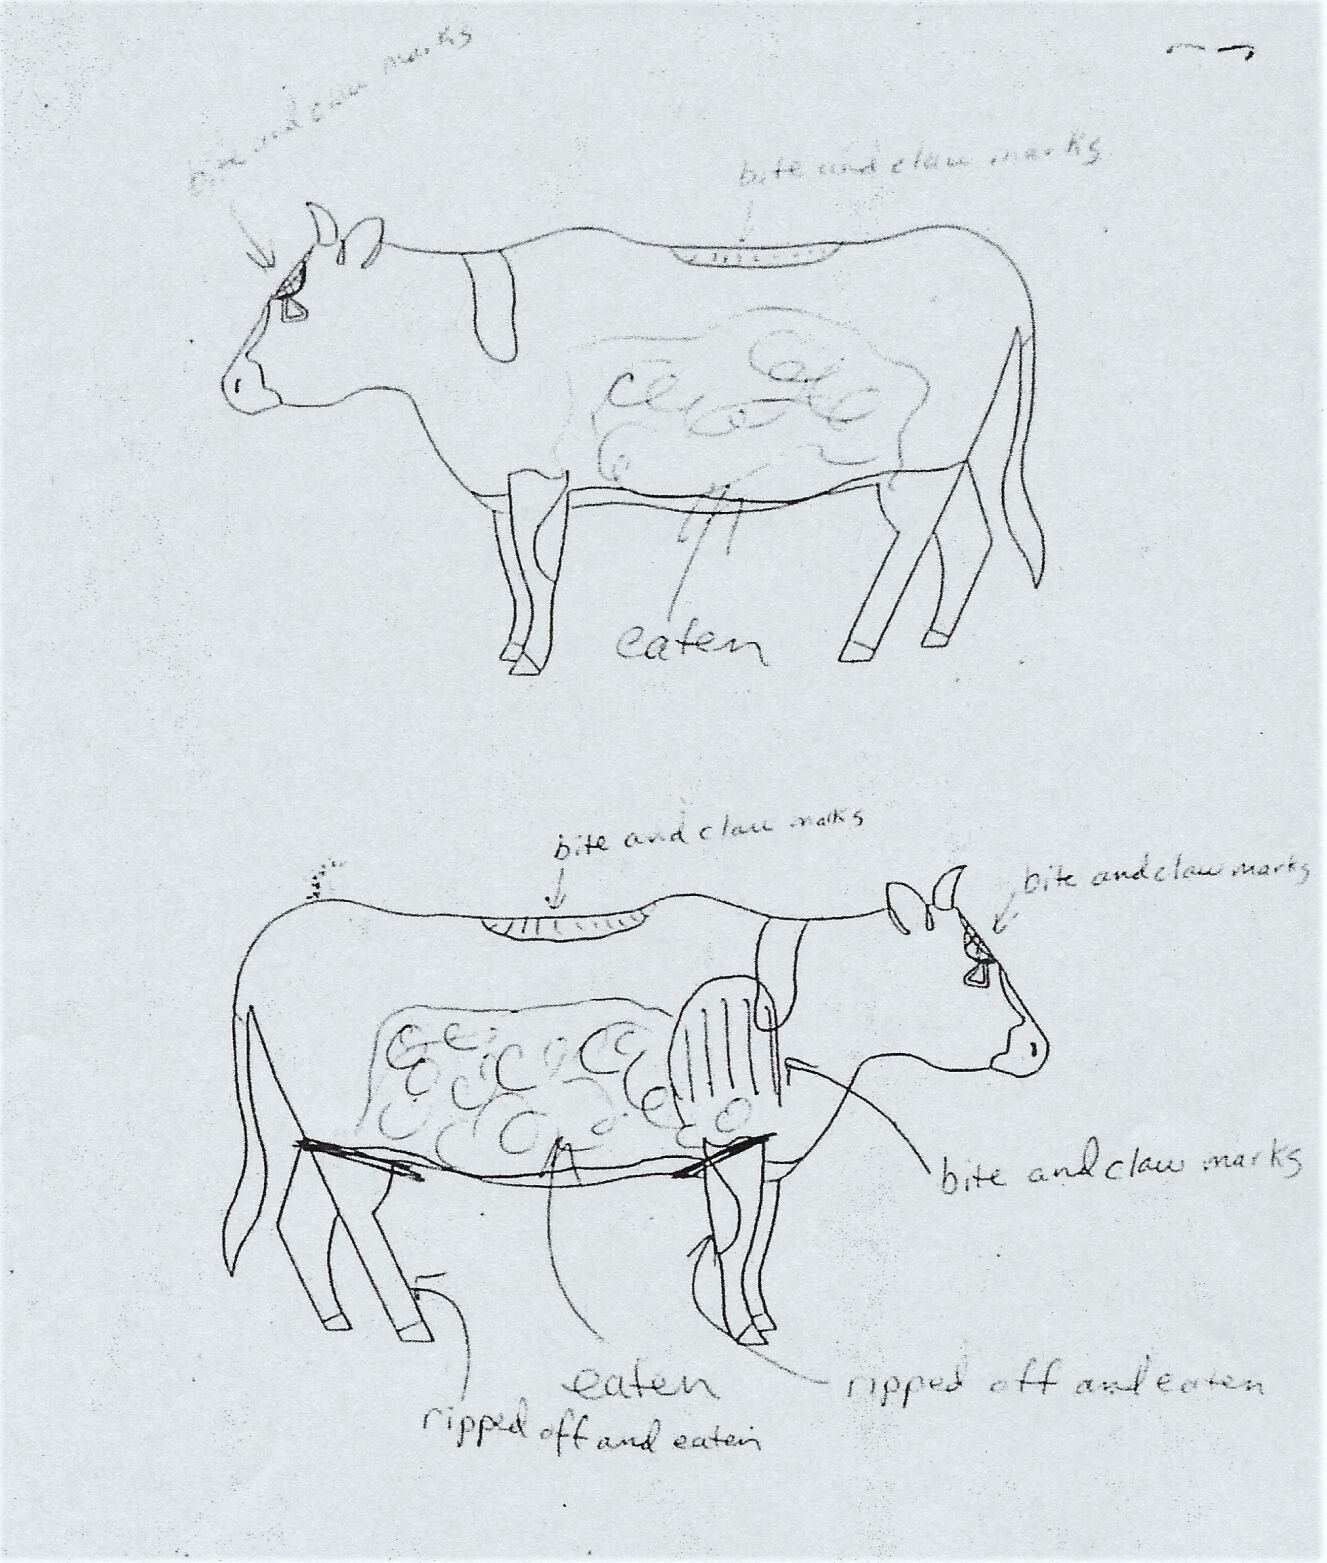 bite and claw marks
bite and claw marks
eaten
bite and claw marks
bite and claw marks
bite and claw marks
eaten
ripped off and eaten
ripped off and eaten